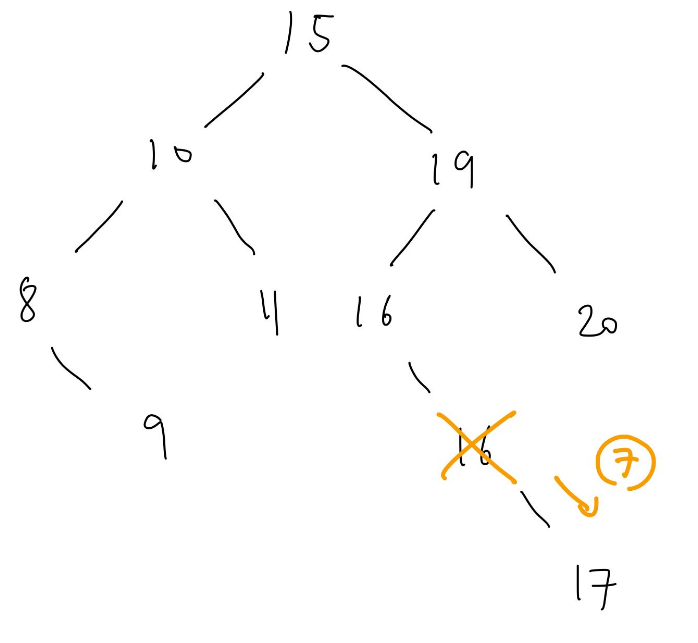 15
10 19
8 11 16 20
9 16 7
17